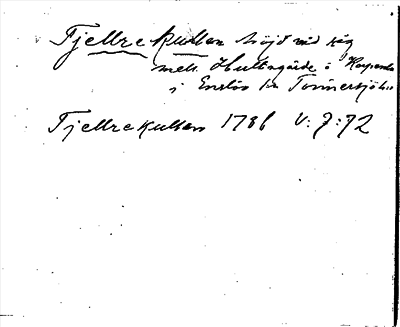 Tjellrekullen höjd vid väg
mell. Hultagärde o Karpenäs
i Enslöv sn Tönnersjö hd
Tjellrekullen 1786 V: 7: 72